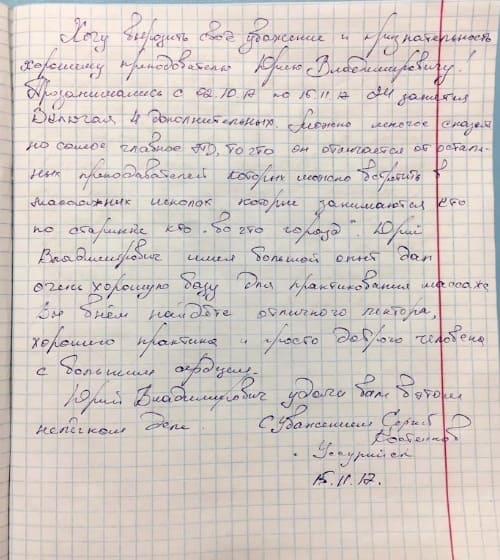 Хочу выразить своё уважение и признательность
хорошему преподователю Юрию Владимировичу!
Прозанимались с 02.10.17 по 15.11.17 24 занятия
Включая 4 дополнительных. Можно многое сказать
но самое главное то что он отличается от осталь-
ных преподавателей которых можно встретить в
массажных школах которые занимаются кто
по старинке кто "во что горазд". Юрий
Владимирович имея большой опыт дал
очень хорошую базу для практикования массажа
Вы в нём найдёте отличного лектора,
хорошего практика и просто доброго человека
с большим сердцем.
Юрий Владимирович удачи вам в этом
нелёгком деле. С Уважением Сергей
Уссурийск
15.11.17.